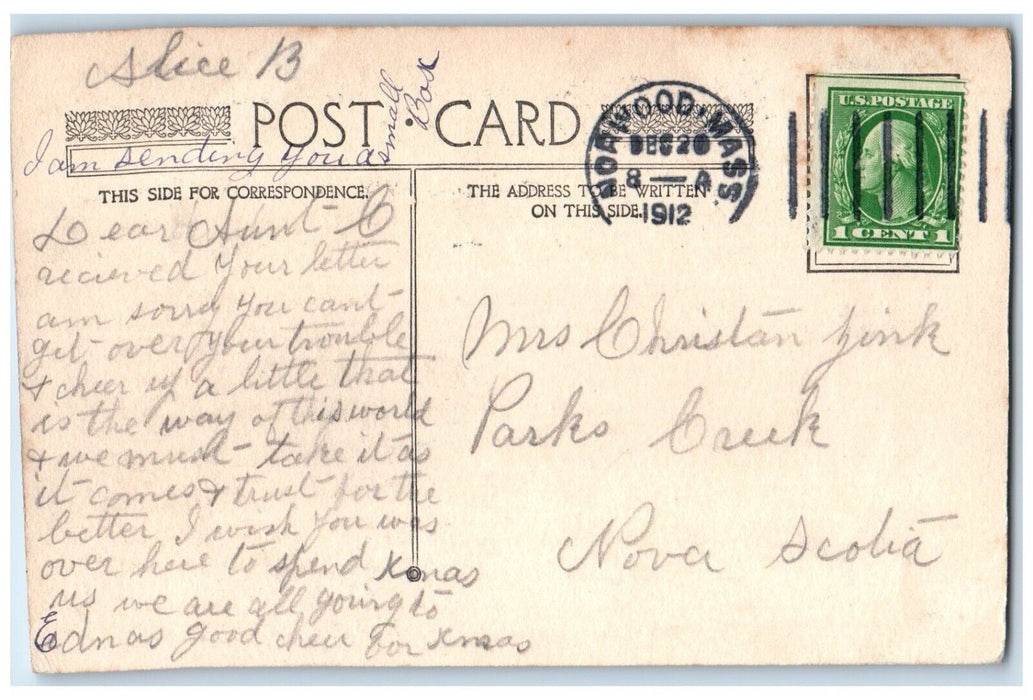 Alice B
I am sending you a small Box
POST CARD
THIS SIDE FOR CORRESPONDENCE.
THE ADDRESS TO BE WRITTEN
ON THIS SIDE.
NORWOOD MASS
DEC 20
8 — A
1912
U.S. POSTAGE
1 CENT 1
Dear Aunt C
recieved your letter
am sorry you cant
git over your trouble
& cheer up a little that
is the way of this world
& we must take it as
it comes & trust for the
better I wish you was
over here to spend xmas
us we are all going to
Ednas good cheer for xmas
Mrs Christan Zink
Parks Creek
Nova Scotia